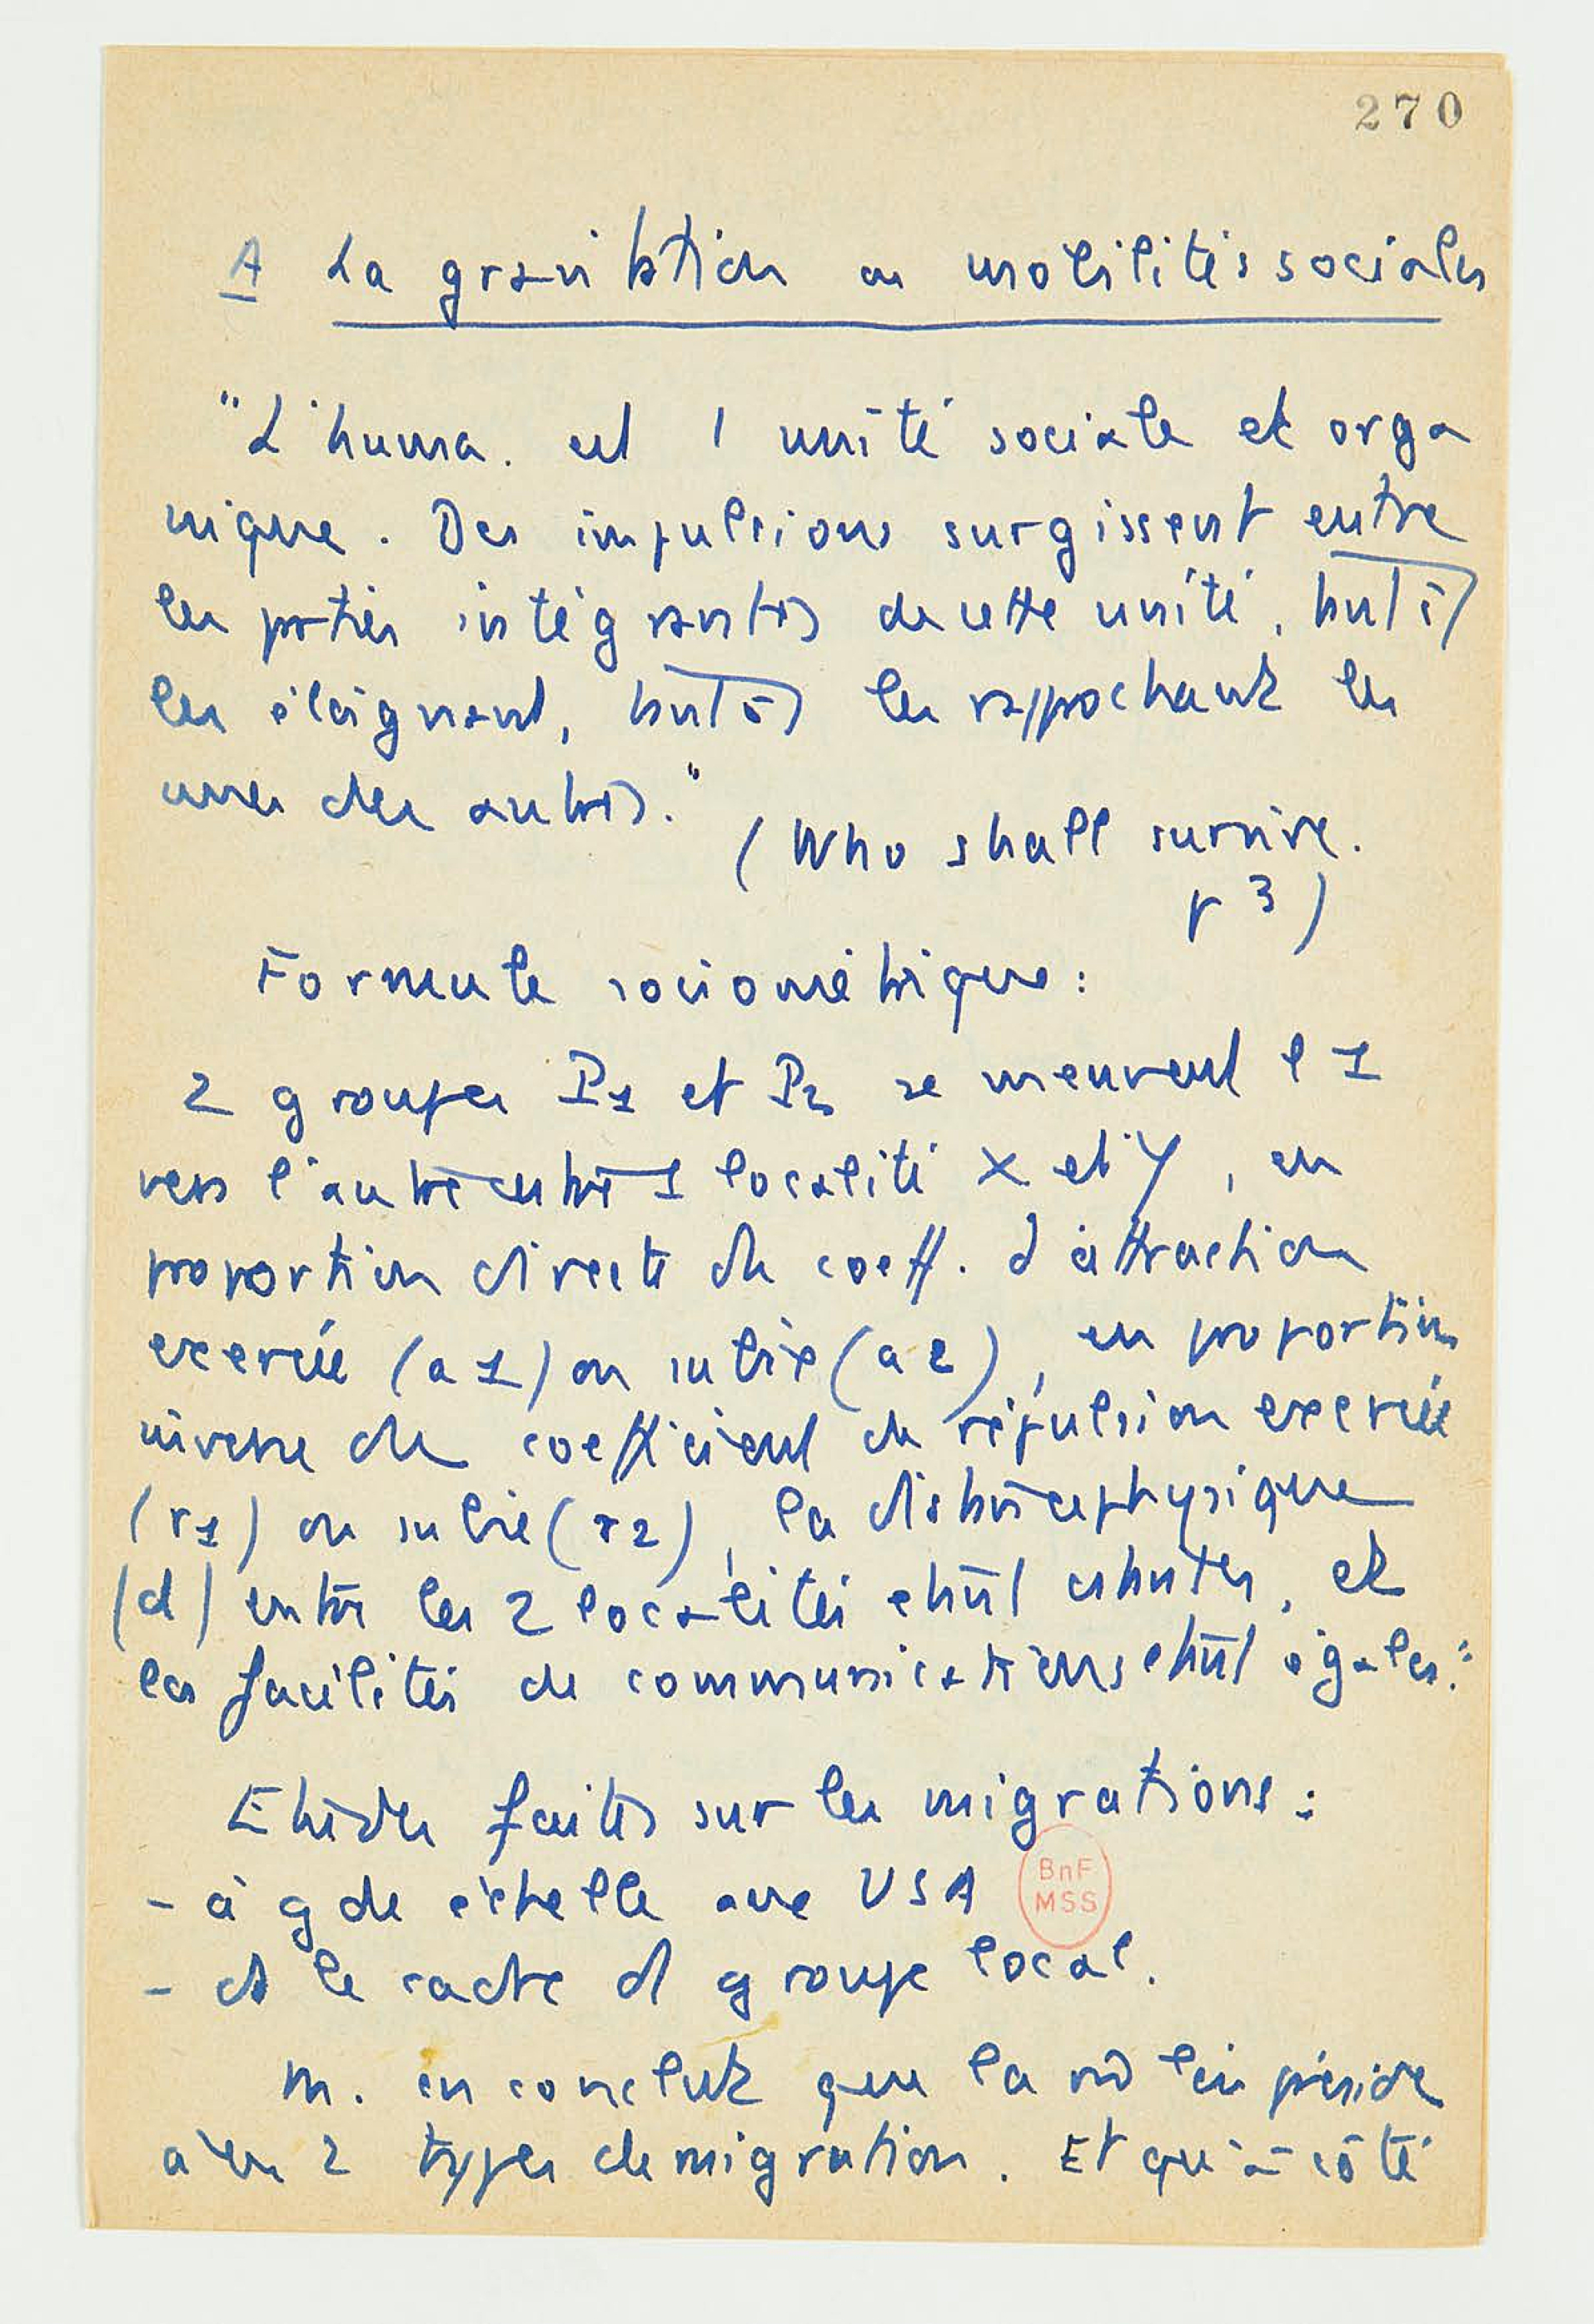 270
A La gravitation ou mobilités sociales
"L'huma. est 1 unité sociale et orga
nique. Des impulsions surgissent entre
les parties intégrantes de cette unité, tantôt
les éloignant, tantôt les rapprochant les
unes des autres."
(Who shall survive.
p 3)
Formule sociométrique :
2 groupes P1 et P2 se meuvent l 1
vers l'autre entre 1 localité X et Y, en
proportion directe du coeff. d'attraction
exercée (a1) ou subie (a2), en proportion
inverse du coefficient de répulsion exercée
(r1) ou subie (r2), la distance physique
(d) entre les 2 localités étant constantes, et
les facilités de communications étant égales."
Etudes faites sur les migrations :
- à gde échelle aux USA
BnF
MSS
- ds le cadre d groupe local.
M. en conclut que la m̂ loi préside
à ces 2 types de migration. Et qu'à côté